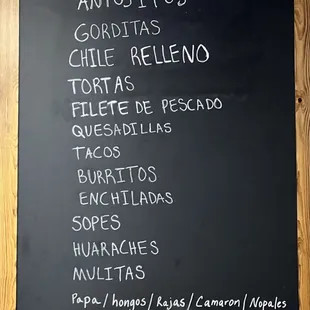 ANTOJITOS
GORDITAS
CHILE RELLENO
TORTAS
FILETE DE PESCADO
QUESADILLAS
TACOS
BURRITOS
ENCHILADAS
SOPES
HUARACHES
MULITAS
Papa/hongos/Rajas/Camaron/Nopales